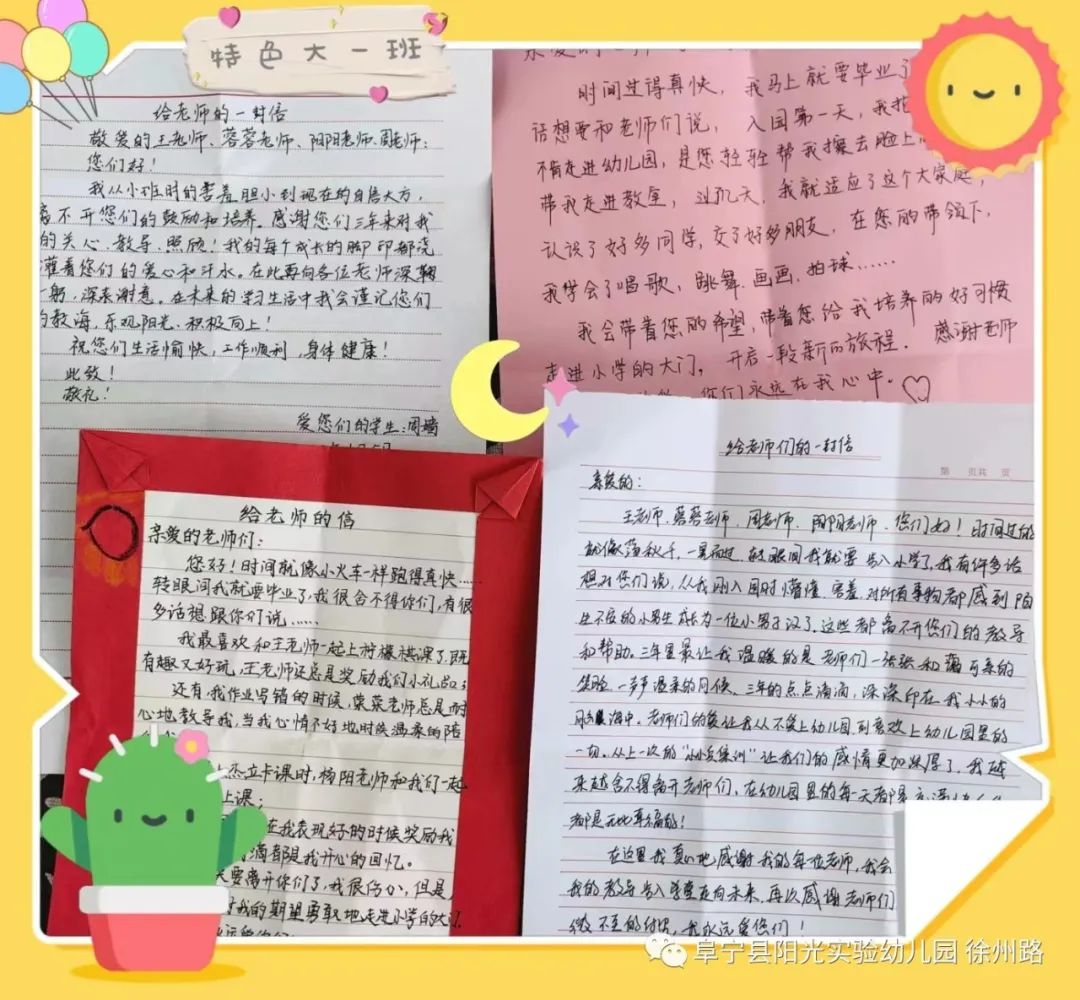 特色大一班
给老师的一封信
敬爱的王老师、蓉蓉老师、阳阳老师、周老师:
您们好!
我从小班时的害羞胆小到现在的自信大方,
离不开您们的鼓励和培养。感谢您们三年来对我
的关心、教导、照顾!我的每个成长的脚印都浇
灌着您们的爱心和汗水。在此要向各位老师深鞠
一躬,深表谢意。在未来的学习生活中我会谨记您们
的教诲,乐观阳光、积极向上!
祝您们生活愉快,工作顺利,身体健康!
此致!
敬礼!
爱您们的学生:周
时间过得真快,我马上就要毕业了
话想要和老师们说,入园第一天,我
不肯走进幼儿园,是您轻轻帮我擦去脸上
带我走进教室,过几天,我就适应了这个大家庭,
认识了好多同学,交了好多朋友,在您的带领下,
我学会了唱歌,跳舞.画画.拍球……
我会带着您的希望,带着您给我培养的好习惯
走进小学的大门,开启一段新的旅程.感谢老师
你们永远在我心中。
给老师的信
亲爱的老师们:
您好!时间就像小火车一样跑得真快……
转眼间我就要毕业了,我很舍不得你们,有很
多话想跟你们说……
我最喜欢和王老师一起上柠檬棋课了,既
有趣又好玩,王老师还总是奖励我们小礼品;
还有,我作业写错的时候,蓉蓉老师总是耐
心地教导我,当我心情不好地时候温柔的陪
杰立卡课时,杨阳老师和我们一起
上课;
在我表现好的时候奖励我
滴都是我开心的回忆。
要离开你们了,我很伤心,但是,
对我的期望勇敢地走进小学的大门
给老师们的一封信
第 页共 页
亲爱的:
王老师、蓉蓉老师、周老师、阳阳老师、您们好!时间过的
就像荡秋千,一晃而过,转眼间我就要步入小学了,我有许多话
想对您们说,从我刚入园时懵懂、害羞、对所有事物都感到陌
生不安的小男生成长为一位小男子汉了,这些都离不开您们的教导
和帮助。三年里最让我温暖的是老师们一张张和蔼可亲的
笑脸,一声声温柔的问候、三年的点点滴滴,深深印在我小小的
脑海中。老师们的爱让我从不爱上幼儿园到喜欢上幼儿园里的
一切,从上一次的“小小兵集训”让我们的感情更加深厚了,我越
来越舍不得离开老师们,在幼儿园里的每一天都是
都是无比幸福的!
在这里我真心地感谢我的每位老师,我会
我的教导步入学堂走向未来,再次感谢老师们
微不至的付出,我永远爱您们!
阜宁县阳光实验幼儿园 徐州路